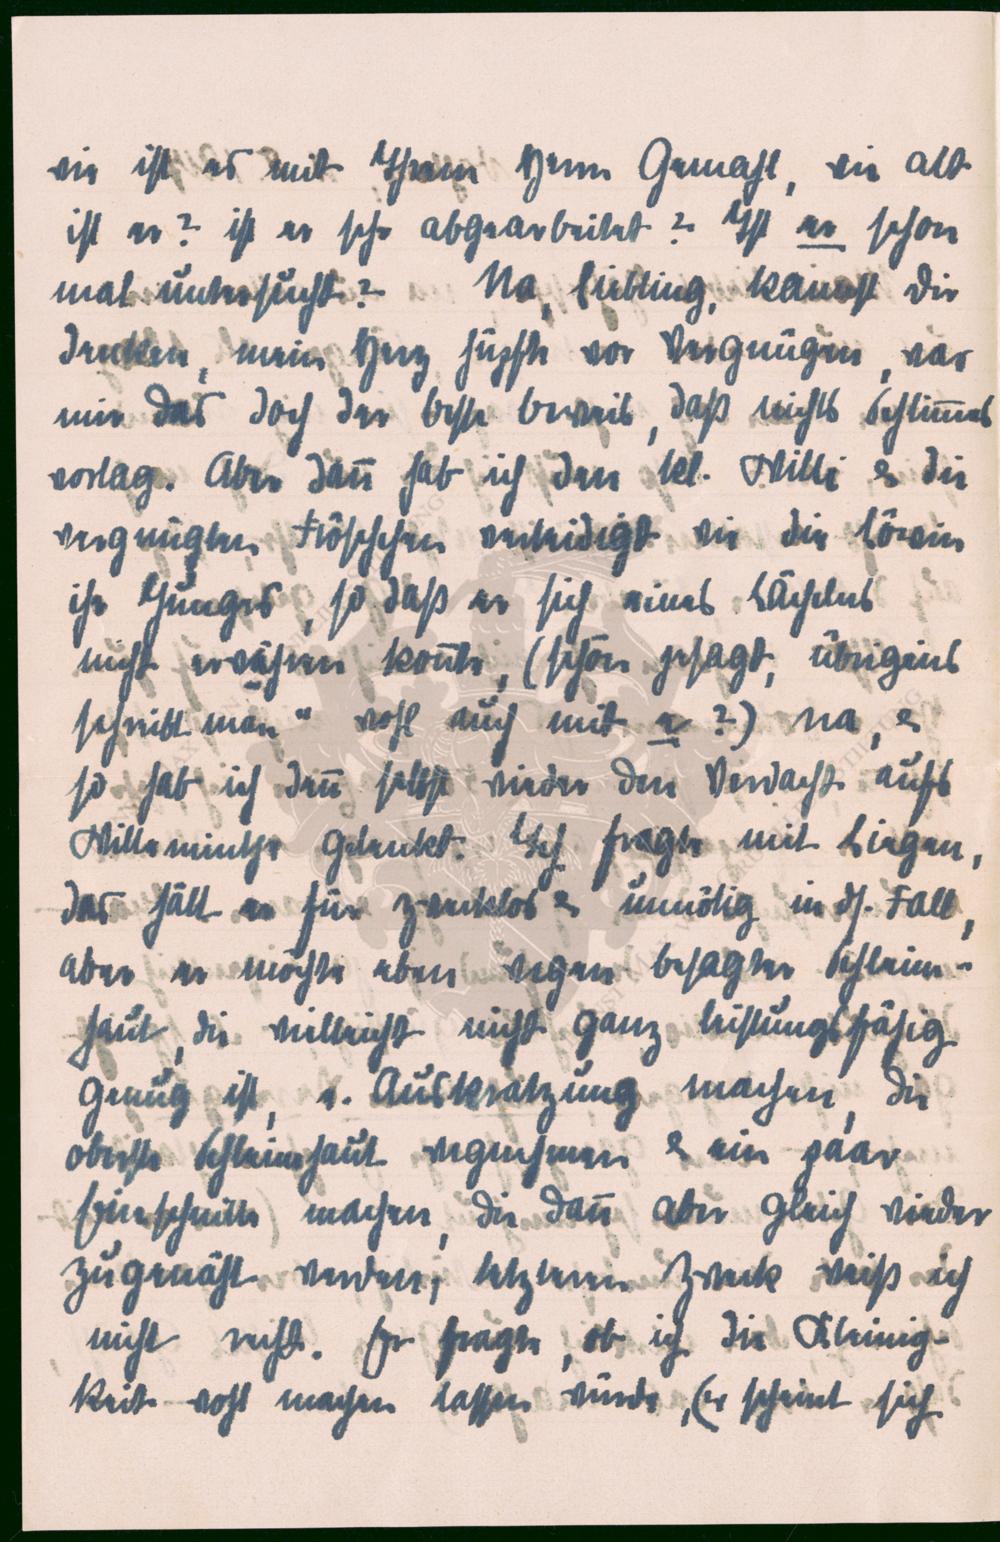 wie ist es mit Ihrem Herrn Gemahl, wie alt
ist er? ist er sehr abgearbeitet? Ist er schon
mal untersucht? Na, Liebling, kannst Du Dir
denken, mein Herz hüpfte vor Vergnügen, war
mir das doch der beste Beweis, daß nichts Schlim̅es
vorlag. Aber dan̅ hab ich den kl. Willi & die
vergnügten Fröschchen verteidigt wie die Löwin
ihr Junges, so daß er sich eines Lächelns
nicht erwähren kon̅te, (schön gesagt, übrigens
schreibt man" wohl auch mit e ?) na, &
so hab ich den̅ selbst wieder den Verdacht aufs
Willeminche gelenkt. Ich fragte mit Liegen,
das hält er für zwecklos & unnötig in ds. Fall,
aber er möchte eben wegen besagter Schleim-
haut, die vielleicht nicht ganz leistungsfähig
genug ist, e. Auskratzung machen, die
oberste Schleimhaut wegnehmen & ein paar
Einschnitte machen, die dan̅ aber gleich wieder
zugenäht werden, letzteren Zweck weiß ich
nicht recht. Er fragte, ob ich die Kleinig-
keit wohl machen lassen würde, (er scheint sich